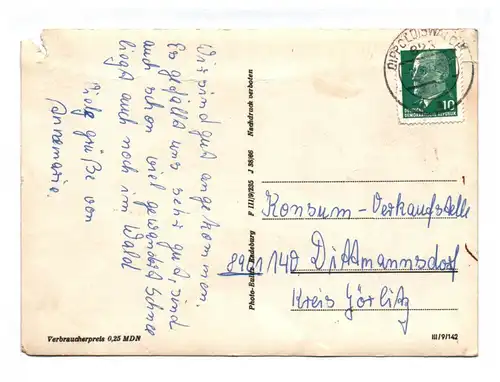 Wir sind gut angekommen.
Es gefällt uns sehr gut, sind
auch schon viel gewandert Schnee
liegt auch noch im Wald
Viele grüße von
Annemarie.
Verbraucherpreis 0,25 MDN
Nachdruck verboten
P III/9/235 J 38/66
Photo-Radeburg
DIPPOLDISWALDE
10
DEUTSCHE
DEMOKRATISCHE REPUBLIK
Konsum-Verkaufstelle
8901 140 Dittmannsdorf
Kreis Görlitz
III/9/142